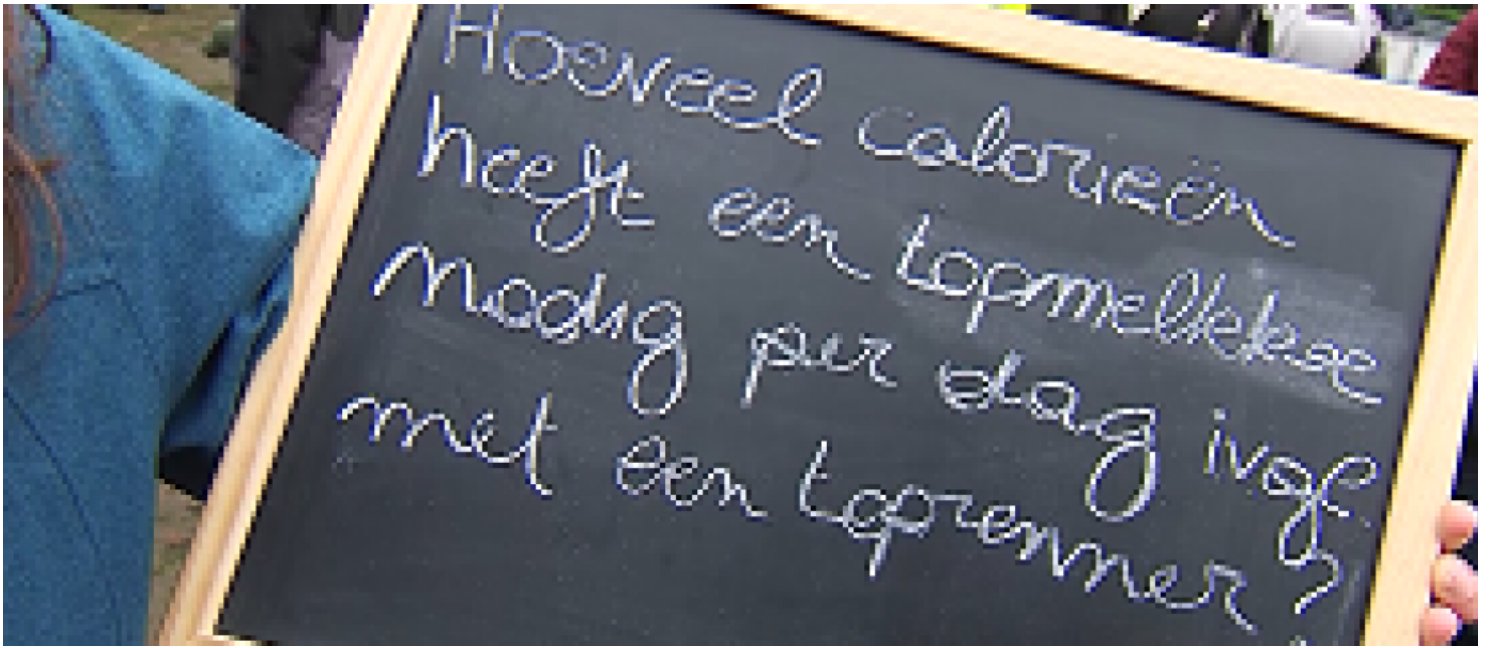 Hoeveel calorieën
heeft een topmelkkoe
nodig per dag ivgl.
met een toprenner?